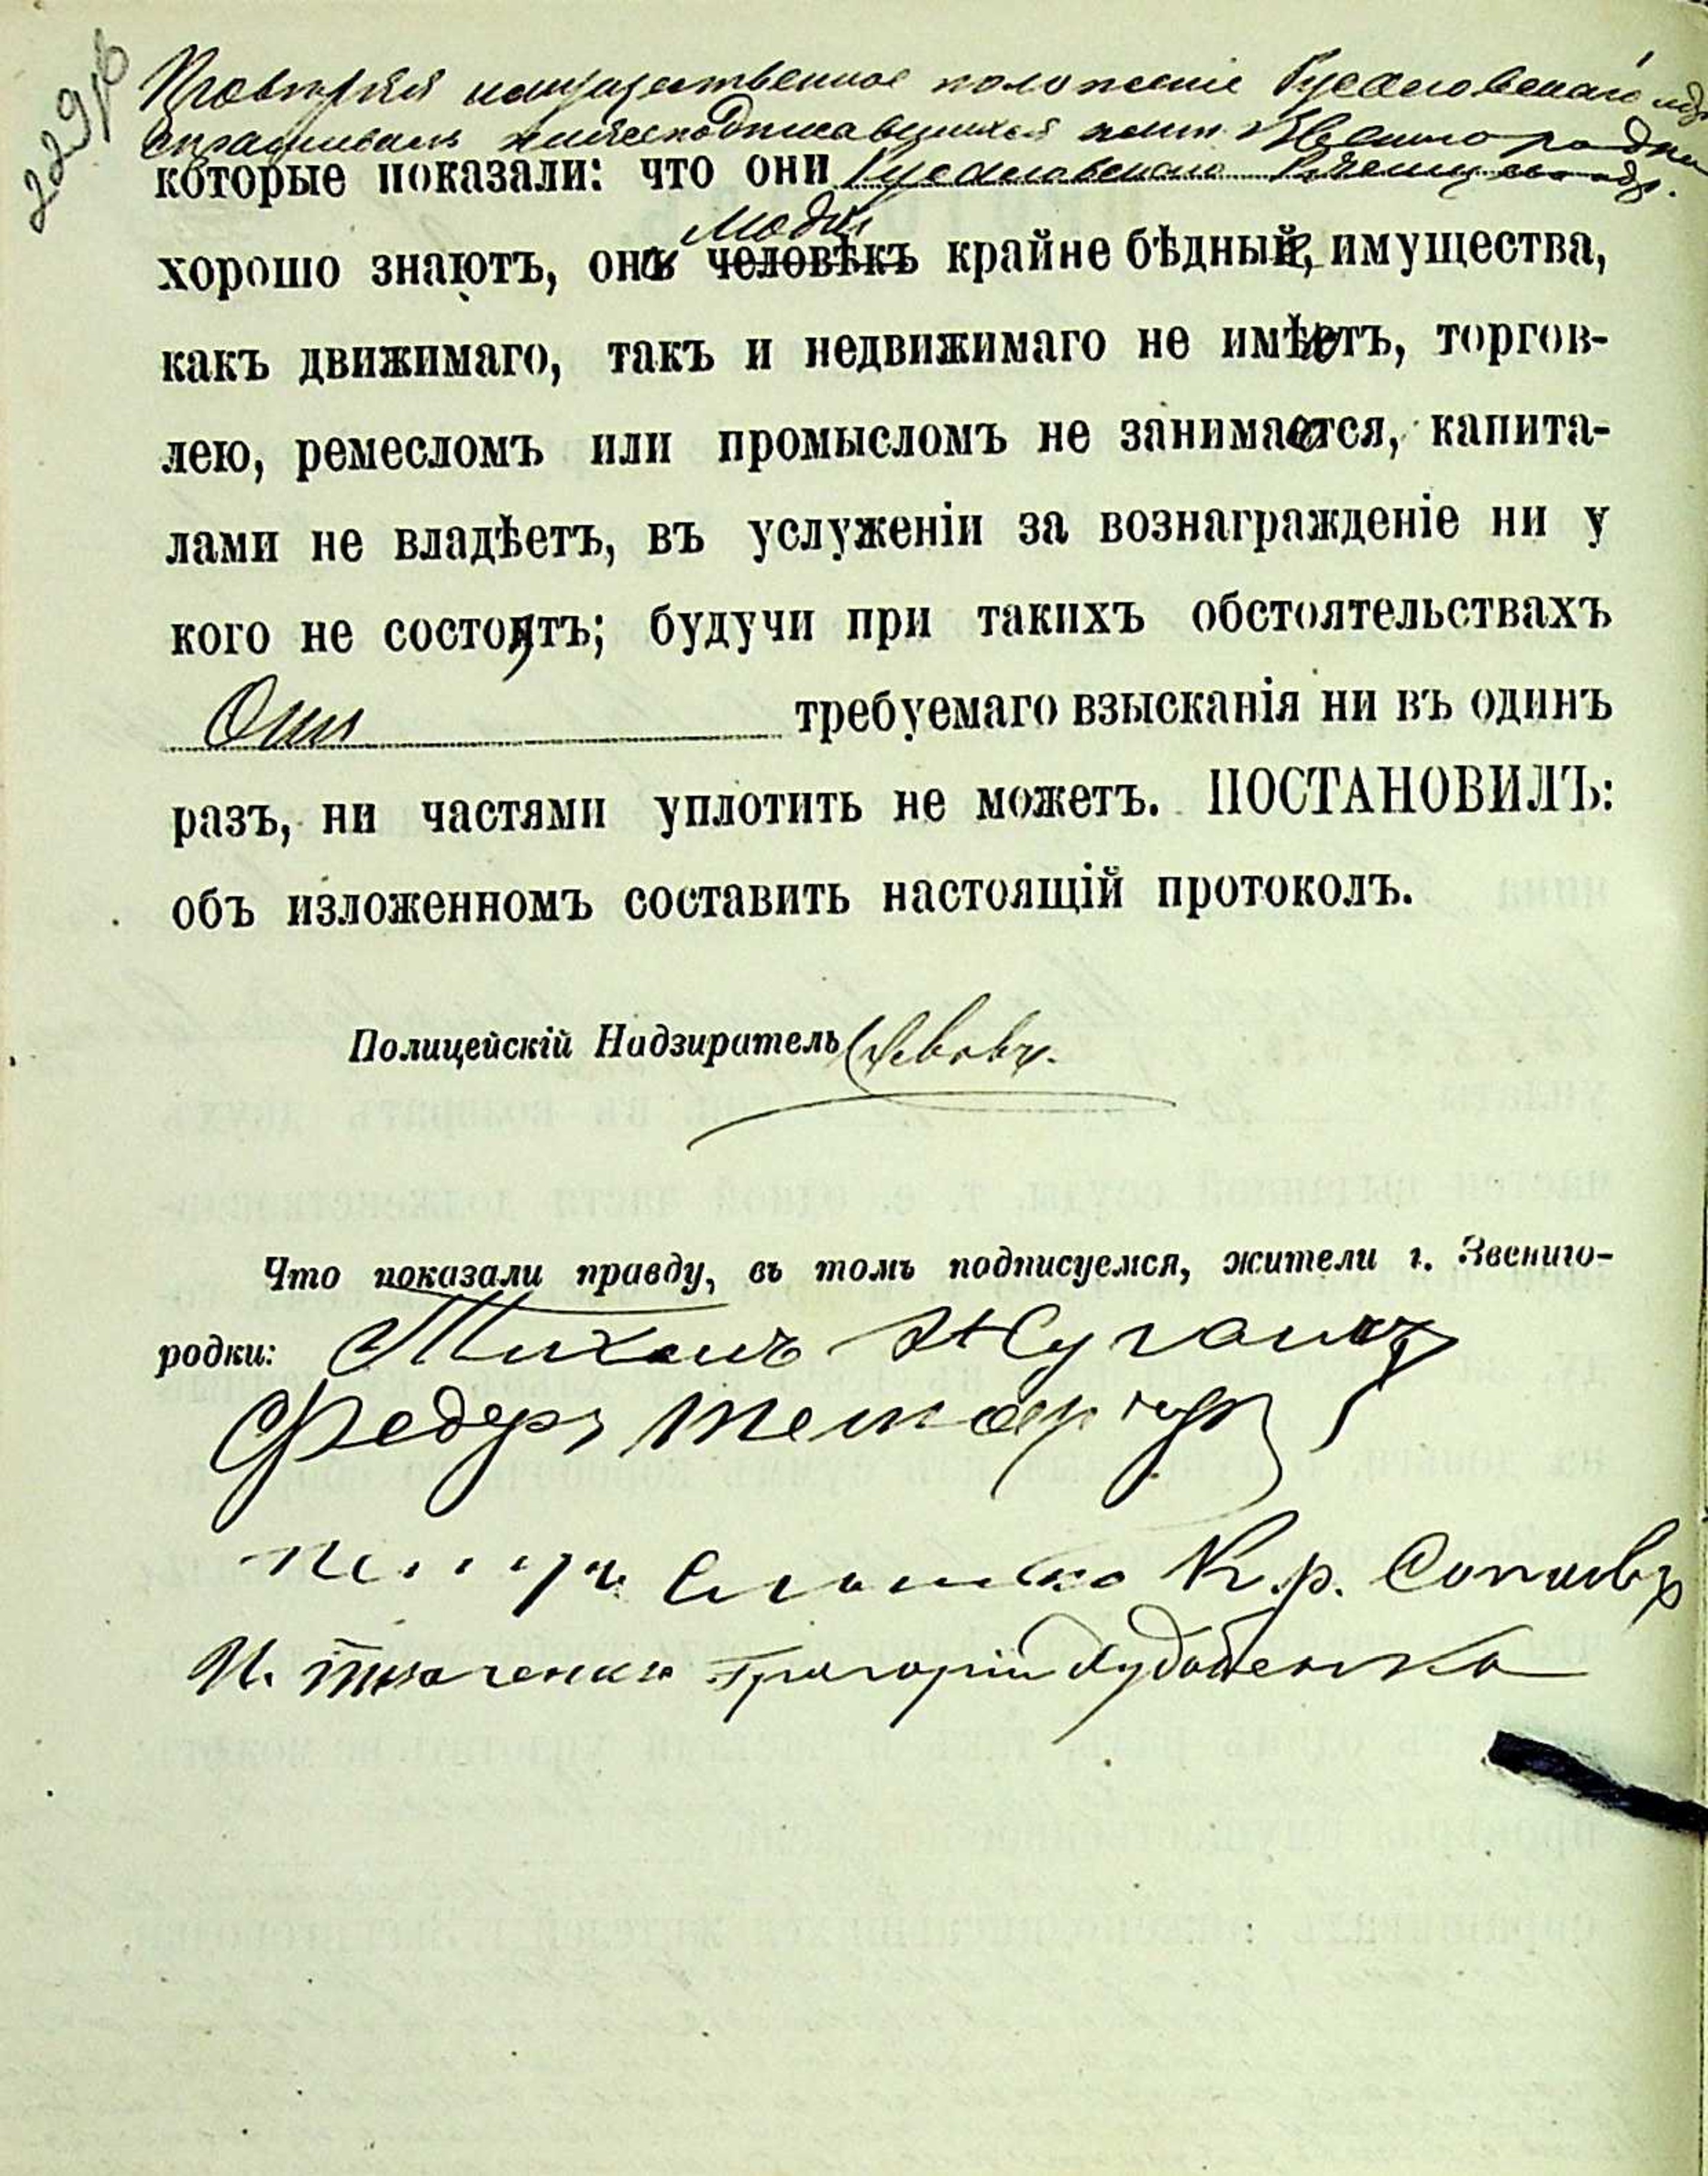 229/об
Провѣряя имущественное положеніе
спрашивалъ нижеподписавшихся жит. Звенигородки
которые показали: что они
люди
хорошо знаютъ, они человѣкъ крайне бѣдные, имущества,
какъ движимаго, такъ и недвижимаго не имѣютъ, торгов-
лею, ремесломъ или промысломъ не занимаются, капита-
лами не владѣетъ, въ услуженіи за вознагражденіе ни у
кого не состоятъ; будучи при такихъ обстоятельствахъ
Они требуемаго взысканія ни въ одинъ
разъ, ни частями уплотить не можетъ. ПОСТАНОВИЛЪ:
объ изложенномъ составить настоящій протоколъ.
Полицейскій Надзиратель
Что показали правду, въ томъ подписуемся, жители г. Звениго-
родки: Тихонъ
Федоръ
Петръ Кр.
И. Ткаченко Григорій Худобенко